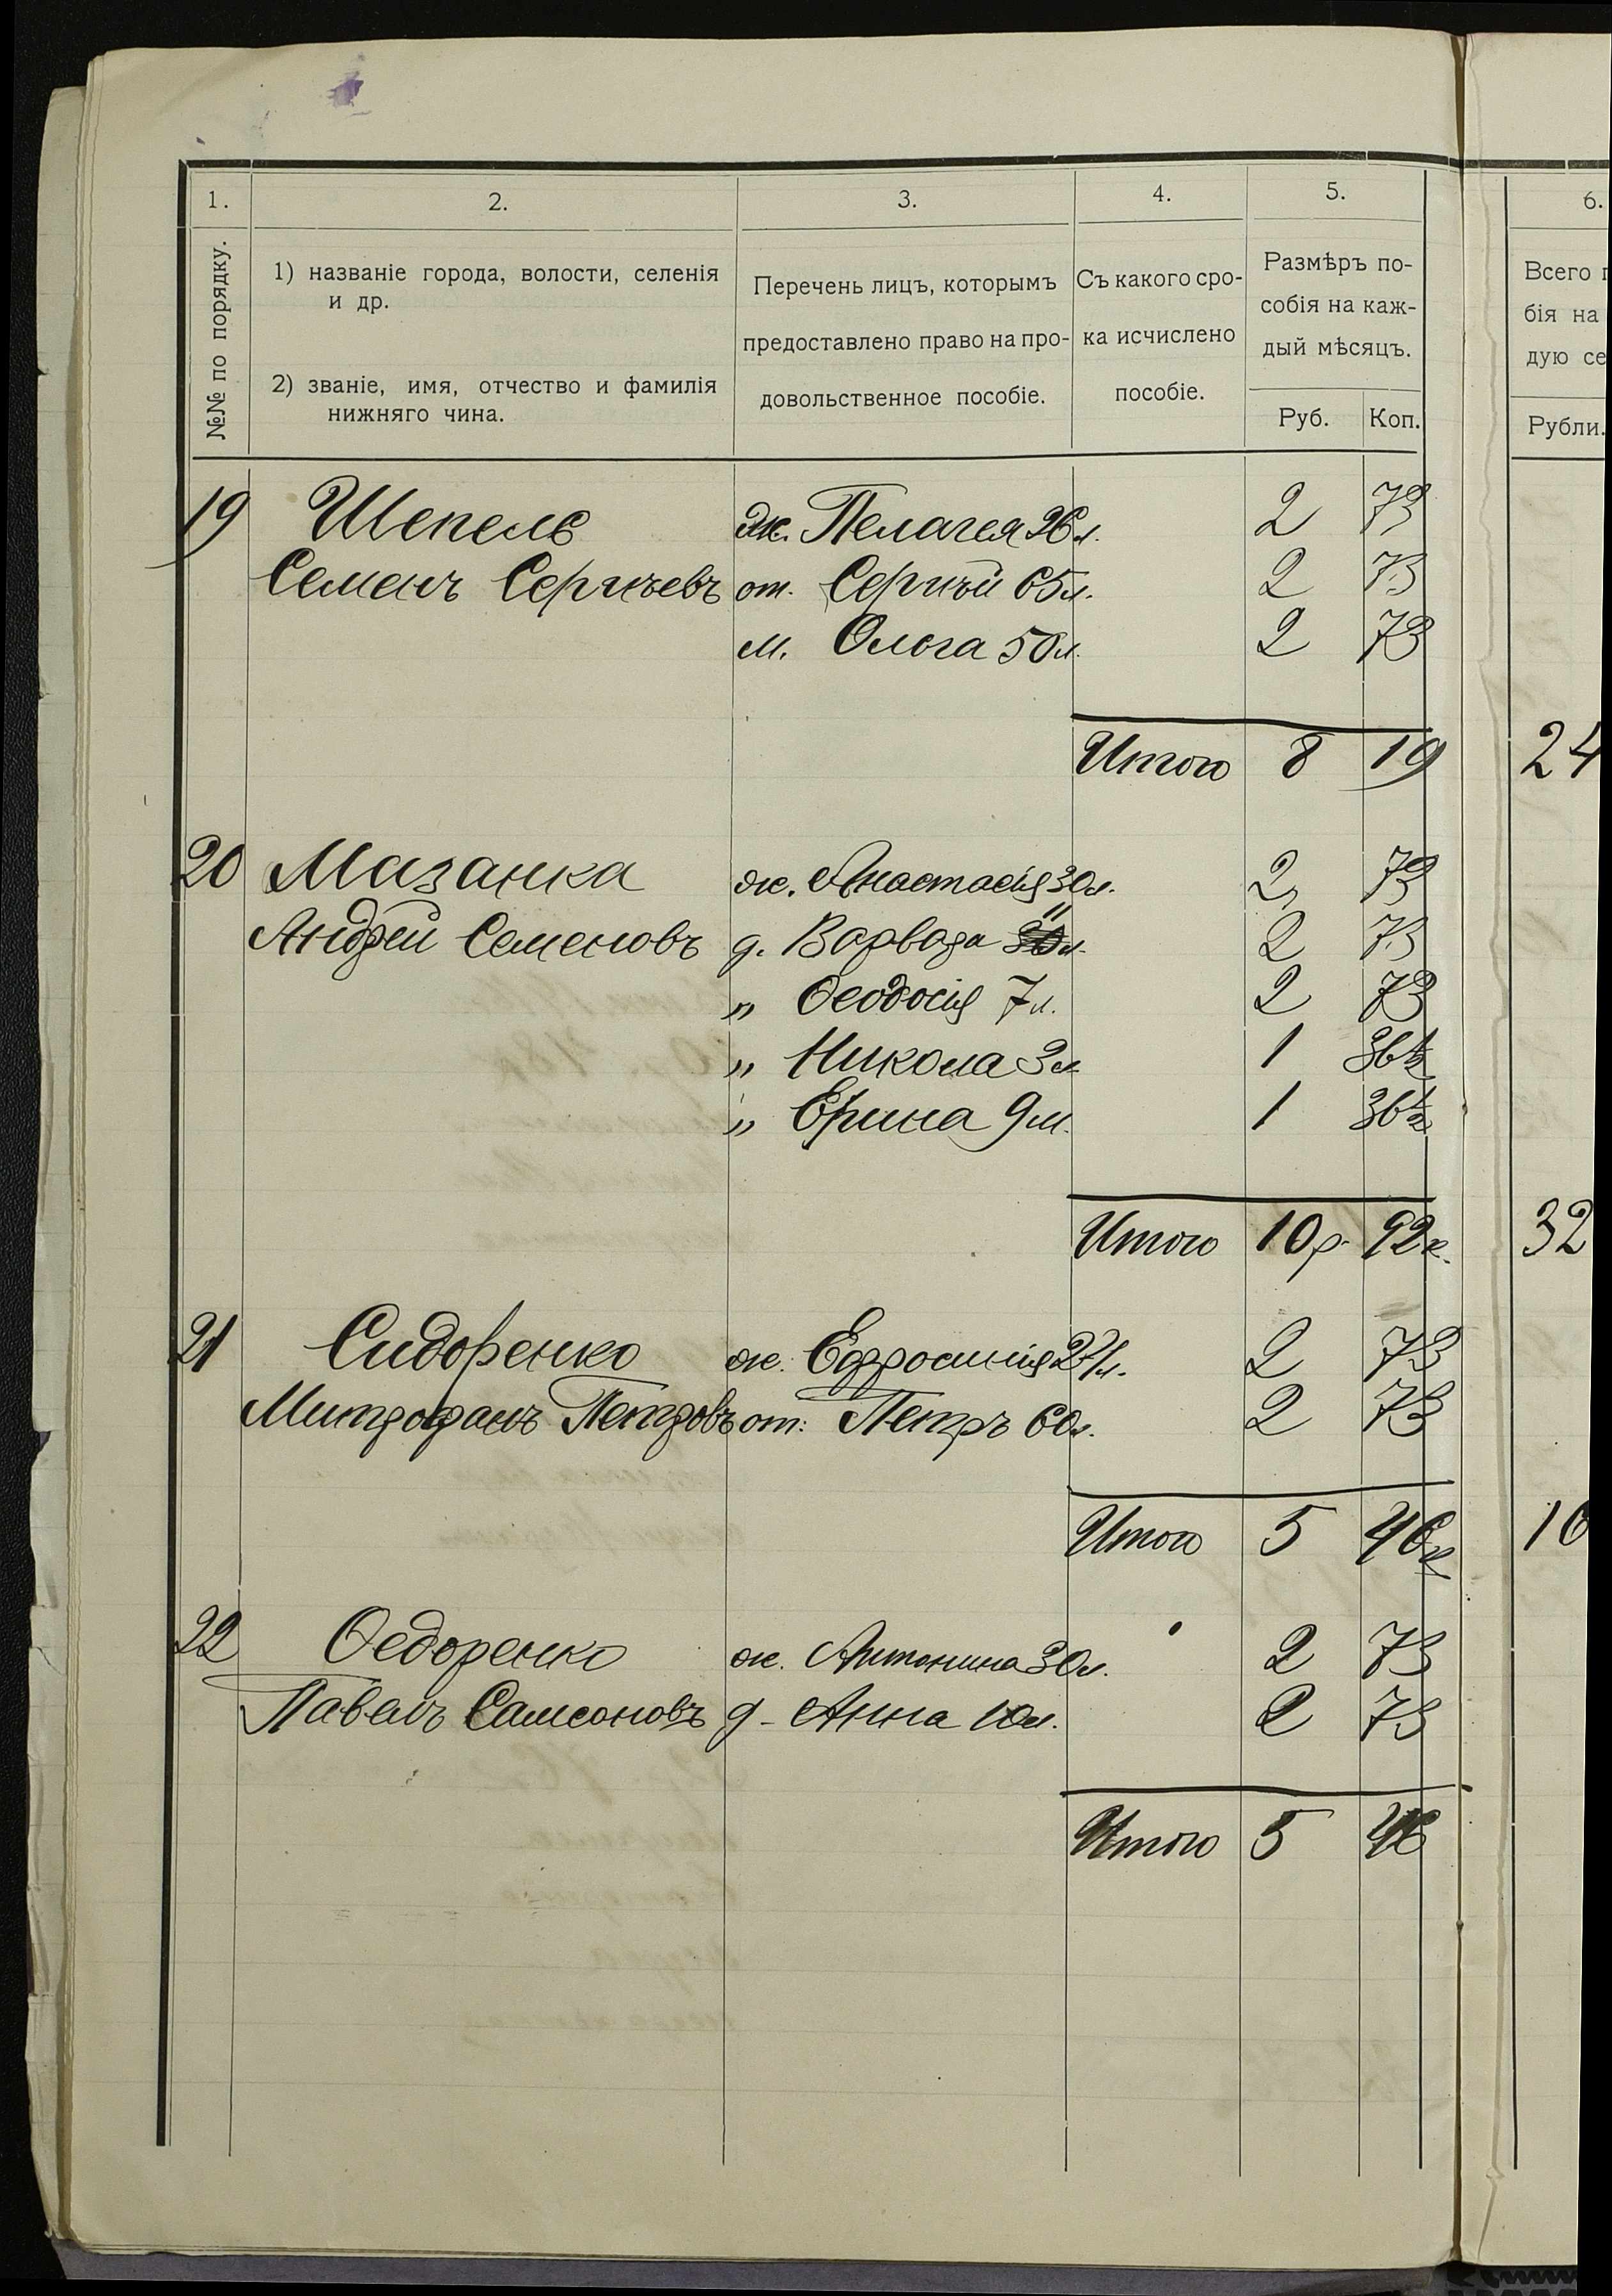 1. 2. 3. 4. 5. 6.
№№ по порядку.
1) названіе города, волости, селенія
и др.
2) званіе, имя, отчество и фамилія
нижняго чина.
Перечень лицъ, которымъ
предоставлено право на про-
довольственное пособіе.
Съ какого сро-
ка исчислено
пособіе.
Размѣръ по-
собія на каж-
дый мѣсяцъ.
Руб. Коп.
Всего п
бія на
дую се
Рубли.
19 Шепель ж. Пелагея 26 л. 2 73
Семенъ Сергѣевъ от. Сергѣй 65 л. 2 73
м. Ольга 50 л. 2 73
Итого 8 19 24
20 Мазанка ж. Анастасія 30 л. 2 73
Андрей Семеновъ д. Варвара 11 л. 2 73
" Ѳеодосія 7 л. 2 73
" Никола 3 л. 1 36½
" Ерина 9 м. 1 36½
Итого 10 р. 92 к. 32
21 Сидоренко ж. Ефросинія 21 л. 2 73
Митрофанъ Петровъ от. Петръ 60 л. 2 73
Итого 5 46 к 16
22 Ѳедоренко ж. Антонина 30 л. 2 73
Павелъ Самсоновъ д - Анна 10 л. 2 73
Итого 5 46